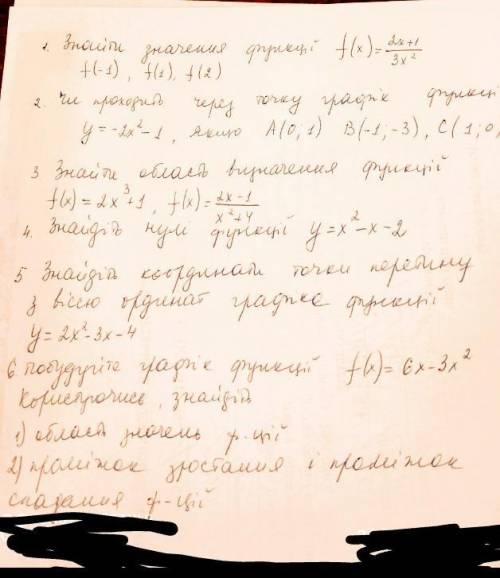 1. Знайти значення функції f(x) = (2x+1)/(3x²)
f(-1), f(1), f(2)
2. Чи проходить через точку графік функції
y = -2x² - 1, якщо A(0; 1) B(-1; -3), C(1; 0
3 Знайти область визначення функції
f(x) = 2x³+1, f(x) = (2x-1)/(x²+4)
4. Знайдіть нулі функції y = x² - x - 2
5 Знайдіть координати точки перетину
з віссю ординат графіка функції
y = 2x² - 3x - 4
6 Побудуйте графік функції f(x) = 6x - 3x²
Користуючись, знайдіть
1) область значень ф-ції
2) проміжок зростання і проміжок
спадання ф-ції